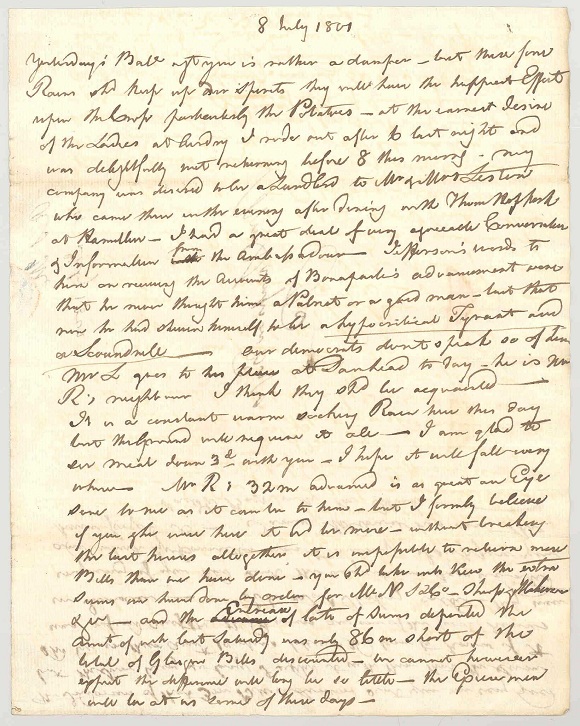 8 July 1801
Yesterday's Bale after you is rather a damper - but these fine
Rains shd keep up our spirits they will have the happiest Effect
upon the Crops particularly the Potatoes - at the earnest desire
of the Ladies at I rode out after 6 last night and
was delightfully wet returning before 8 this morng - my
company was desired to be a Landlord to Mr & Mrs Liston
who came there in the evening after dining with Thom
at - I had a great deal of very agreeable Conversation
& Information from the Ambassadour - Jefferson's words to
him on receiving the Accounts of Bonaparte's advancement were
that he never thought him a Patriot or a good man - but that
now he had shewn himself to be a hypocritical Tyrant and
a Scoundrell - our democrats dont speak so of him
Mr L goes to his place at to day - he is Mr
R's neighbour I think they shd be acquainted
It is a constant warm soaking Rain here this day
but the Ground will require it all - I am glad to
see meal down 3d with you - I hope it will fall every
where - Mr R's 32m advanced is as great an Eye
sore to me as it can be to him - but I firmly believe
if you were here it wd be more - without breaking
the last altogether it is impossible to return more
Bills than we have done - you shd take into View the extra
sums we have done by order for
& - and the Encrease of late of sums deposited the
amt of wch last Saturday was only 86m short of the
total of Glasgow Bills discounted - we cannot however
expect the difference will long be so little - the Excise men
will be at us some of these days -